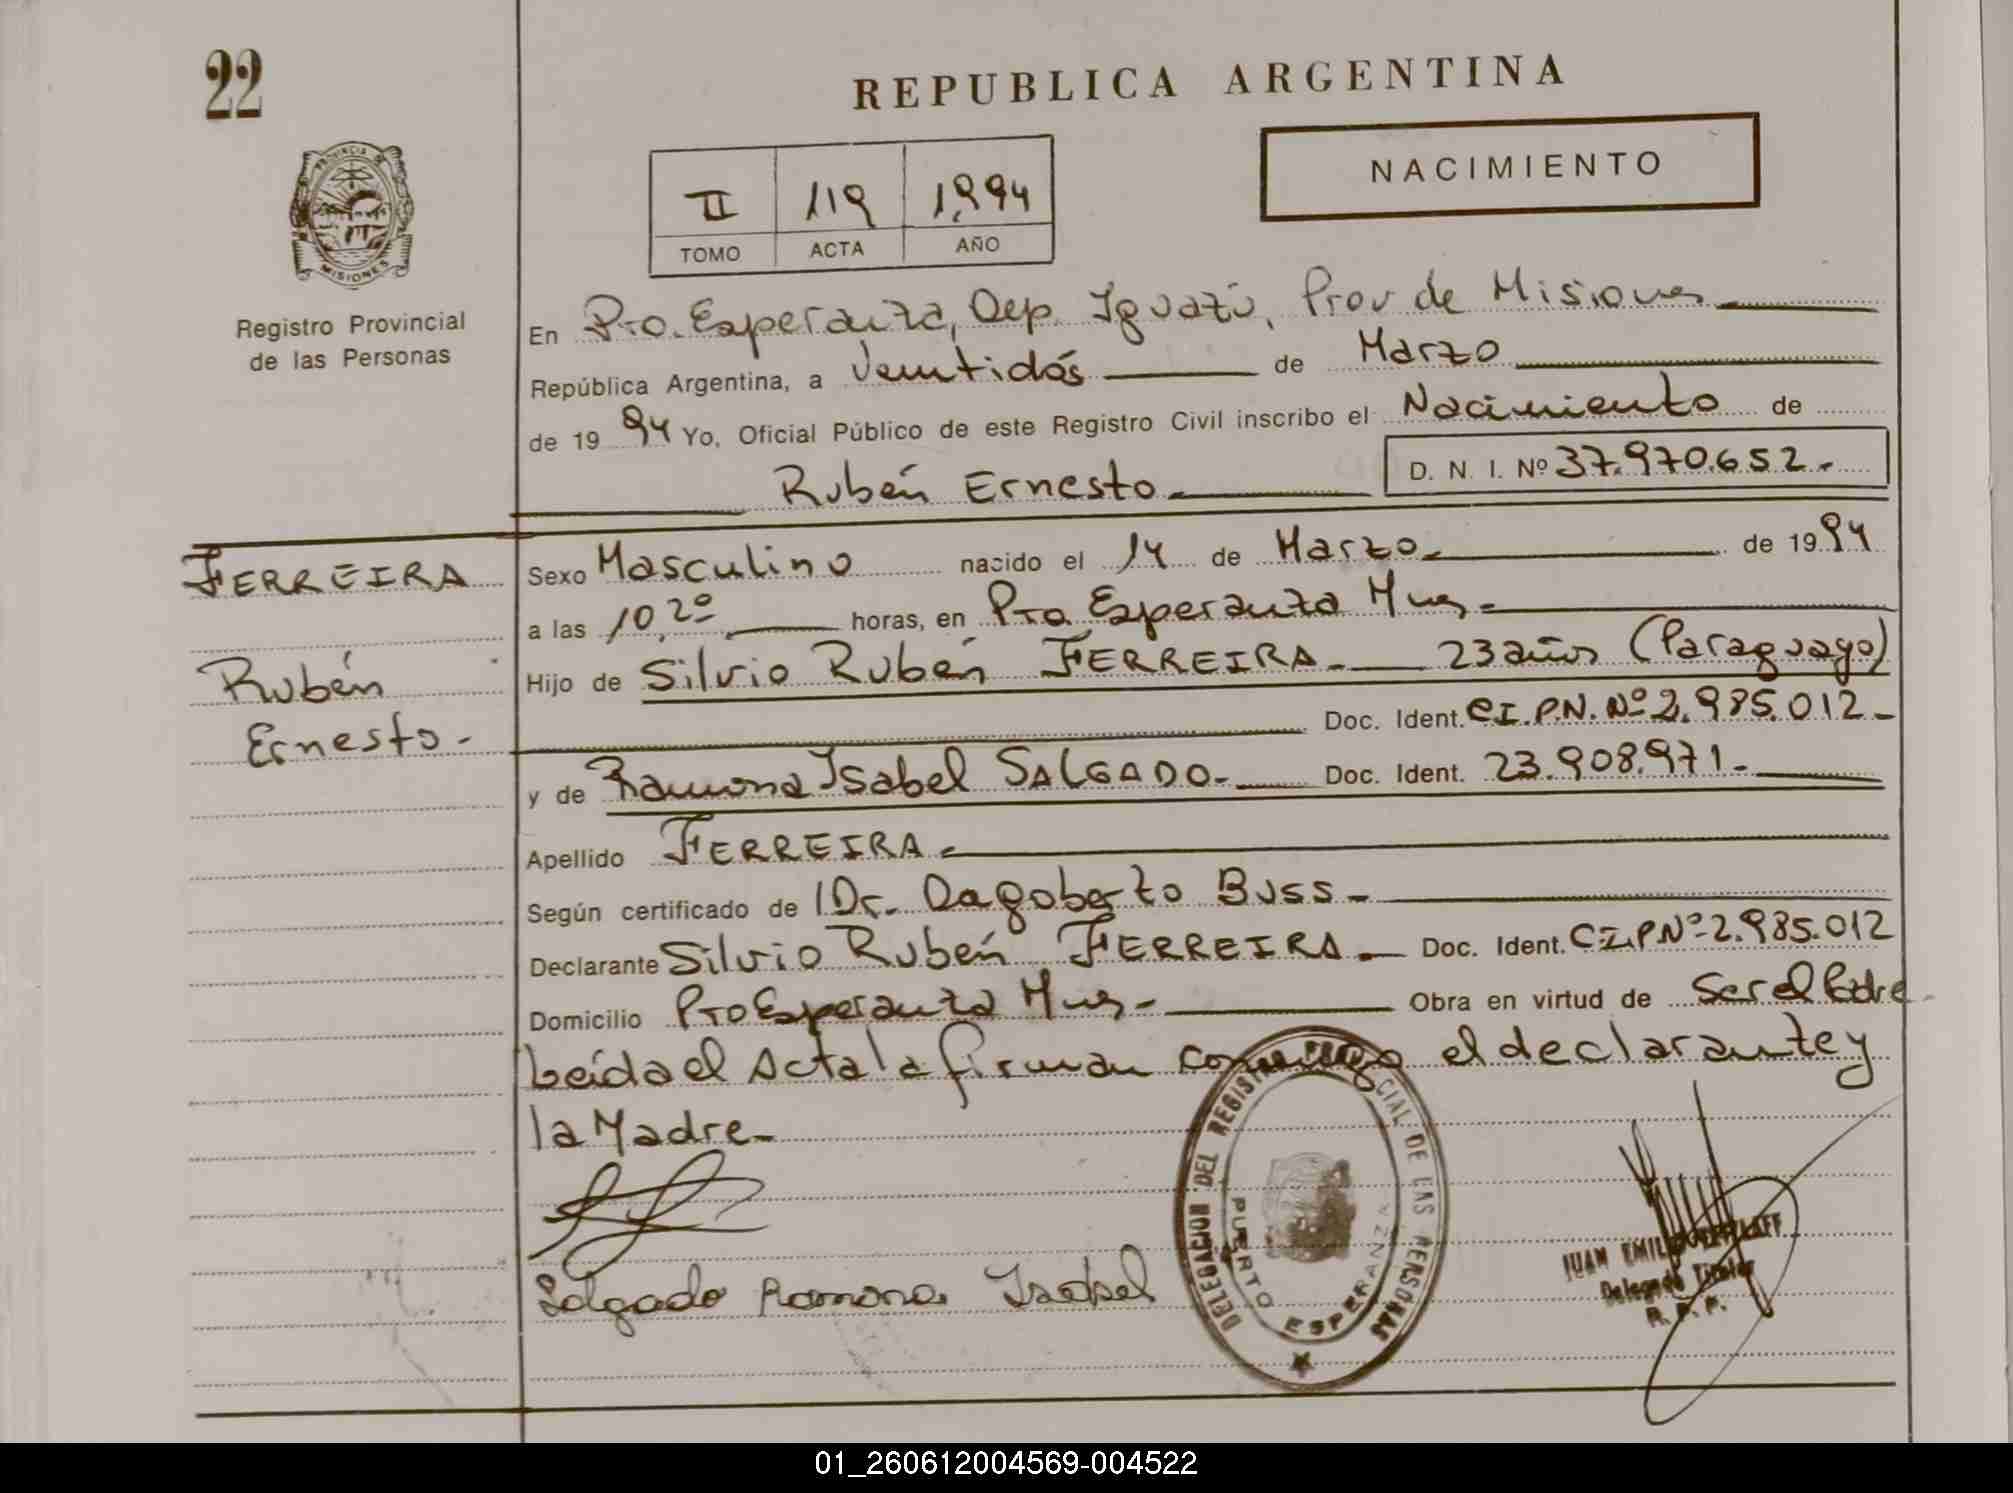 22
REPUBLICA ARGENTINA
NACIMIENTO
II 119 1.994
TOMO ACTA AÑO
PROVINCIA DE
MISIONES
Registro Provincial
de las Personas
En Pto. Esperanza, Dep. Iguazú, Prov de Misiones
República Argentina, a Veintidós de Marzo
de 19 94 Yo, Oficial Público de este Registro Civil inscribo el Nacimiento de
Rubén Ernesto D. N. I. Nº 37.970.652.-
FERREIRA
Rubén
Ernesto.-
Sexo Masculino nacido el 14 de Marzo de 19 94
a las 10,20 horas, en Pto Esperanza Mnes.-
Hijo de Silvio Rubén FERREIRA.- 23 años (Paraguayo)
Doc. Ident. C.I.P.N. Nº 2.985.012.-
y de Ramona Isabel SALGADO.- Doc. Ident. 23.908.971.-
Apellido FERREIRA.-
Según certificado de Dr. Dagoberto Buss.-
Declarante Silvio Rubén FERREIRA.- Doc. Ident. C.I.P.Nº 2.985.012
Domicilio Pto Esperanza Mnes.- Obra en virtud de Ser el Padre
Leída el Acta la firman conmigo el declarante y
la Madre.-
Salgado Ramona Isabel
DELEGACION DEL REGISTRO PROVINCIAL DE LAS PERSONAS
PUERTO ESPERANZA
JUAN EMILIO
Delegado Titular
R. P. P.
01_260612004569-004522